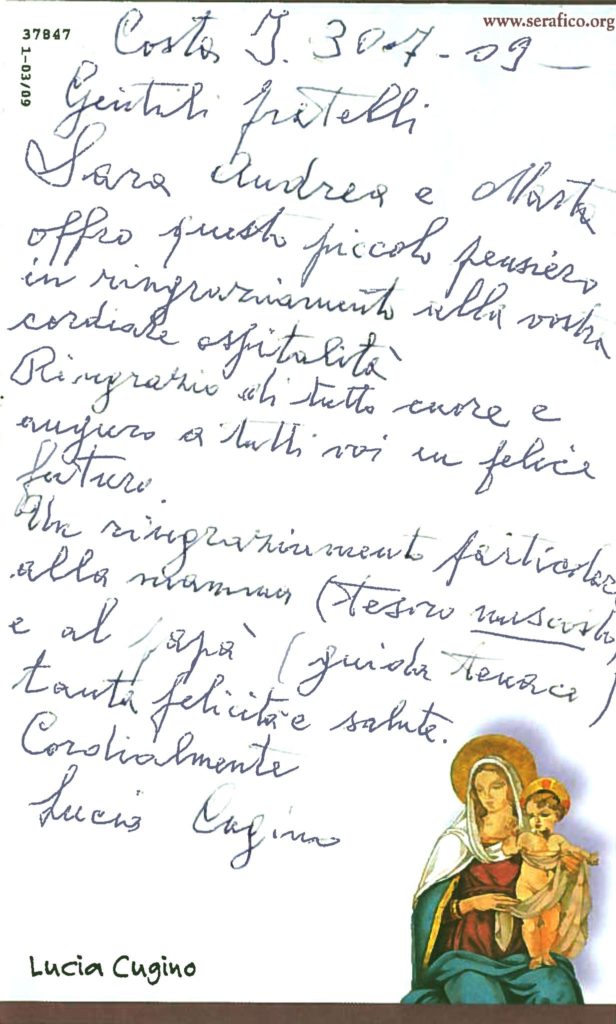 www.serafico.org
37847
1-03/09
Costa I. 30-7-09 —
Gentili fratelli
Sara Andrea e Marta
offro questo piccolo pensiero
in ringraziamento alla vostra
cordiale ospitalità
Ringrazio di tutto cuore e
auguro a tutti voi un felice
futuro.
Un ringraziamento particolare
alla mamma (tesoro nascosto)
e al papà (guida tenace)
tanta felicità e salute.
Cordialmente
Lucia Cugino
Lucia Cugino